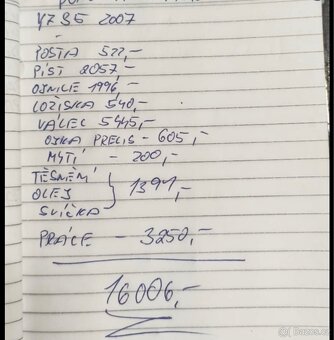 YZ 85 2007
POŠTA 522,-
PÍST 2057,-
OJNICE 1996,-
LOŽISKA 540,-
VÁLEC 5445,-
OJKA PRECIS - 605,-
MYTÍ - 200,-
TĚSNĚNÍ
OLEJ 1391,-
SVÍČKA
PRÁCE - 3250,-
16006,-
Bazos.cz